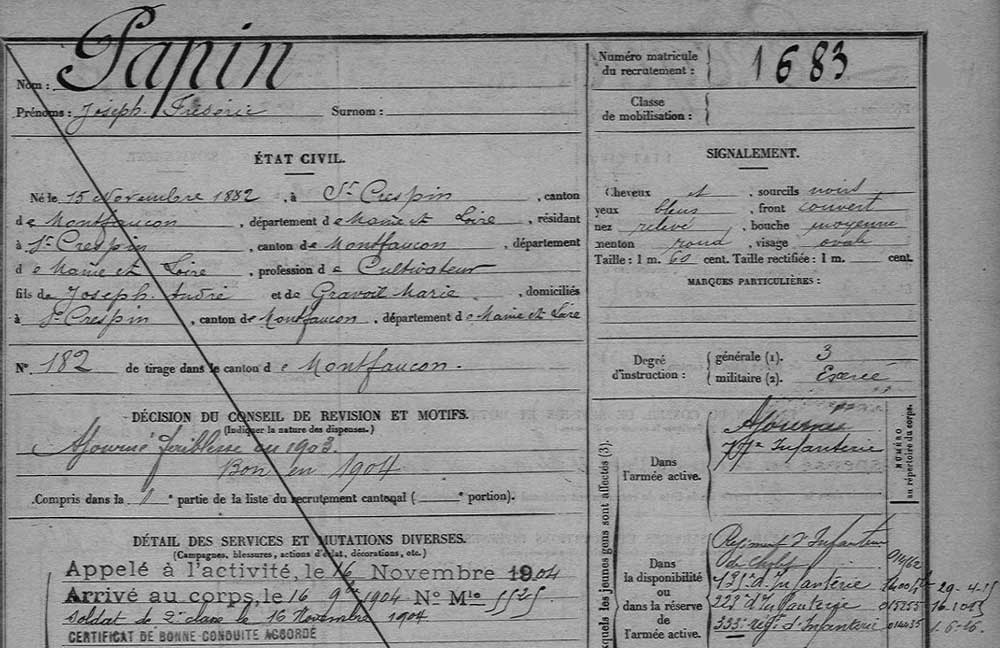 Nom : Papin
Prénoms : Joseph Frédéric Surnom :
ÉTAT CIVIL.
Né le 15 Novembre 1882, à St Crespin, canton
de Montfaucon, département de Maine et Loire, résidant
à St Crespin, canton de Montfaucon, département
de Maine et Loire, profession de Cultivateur
fils de Joseph André et de Gravoil Marie, domiciliés
à St Crespin, canton de Montfaucon, département de Maine et Loire
N° 182 de tirage dans le canton de Montfaucon.
DÉCISION DU CONSEIL DE REVISION ET MOTIFS.
(Indiquer la nature des dispenses.)
Ajourné faiblesse en 1903.
Bon en 1904
Compris dans la 1e partie de la liste du recrutement cantonal ( e portion).
DÉTAIL DES SERVICES ET MUTATIONS DIVERSES.
(Campagnes, blessures, actions d'éclat, décorations, etc.)
Appelé à l'activité, le 16 Novembre 1904
Arrivé au corps, le 16 9bre 1904 N° Mle 5525
Soldat de 2e classe le 16 Novembre 1904
CERTIFICAT DE BONNE CONDUITE ACCORDÉ
Numéro matricule
du recrutement : 1683
Classe
de mobilisation :
SIGNALEMENT.
Cheveux et, sourcils noirs
yeux bleus, front couvert
nez relevé, bouche moyenne
menton rond, visage ovale
Taille : 1 m. 60 cent. Taille rectifiée : 1 m. cent.
MARQUES PARTICULIÈRES :
Degré
d'instruction :
générale (1). 3
militaire (2). Exercé
xquels les jeunes gens sont affectés (3).
NUMÉRO
au répertoire du corps.
Dans
l'armée active.
Ajourné
77e Infanterie
Dans
la disponibilité
ou
dans la réserve
de l'armée active.
Régiment d'Infanterie
de Cholet
135e d'Infanterie 29-4-15
223e d'Infanterie 015255
333e Régt d'Infanterie 014035 1-6-16